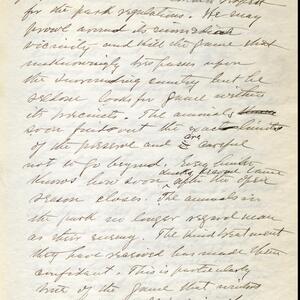 for the park regulations. He may
prowl around its immediate
vicinity and kill the game that
unknowingly trespasses upon
the surrounding country but he
seldom looks for game within
its precincts. The animals
soon find out the exact limits
of the preserve and are careful
not to go beyond. Every hunter
knows how soon ducks become tame
after the open
season closes. The animals in
the park no longer regard man
as their enemy. The kind treatment
they have received has made them
confident. This is particularly
true of the game that winters